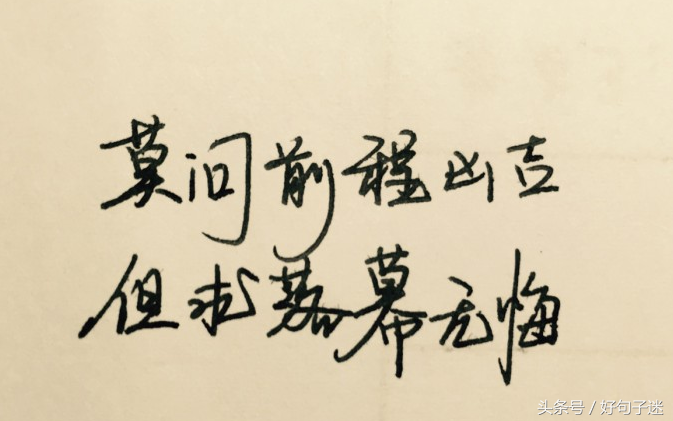 莫问前程凶吉
但求落幕无悔
头条号／好句子迷